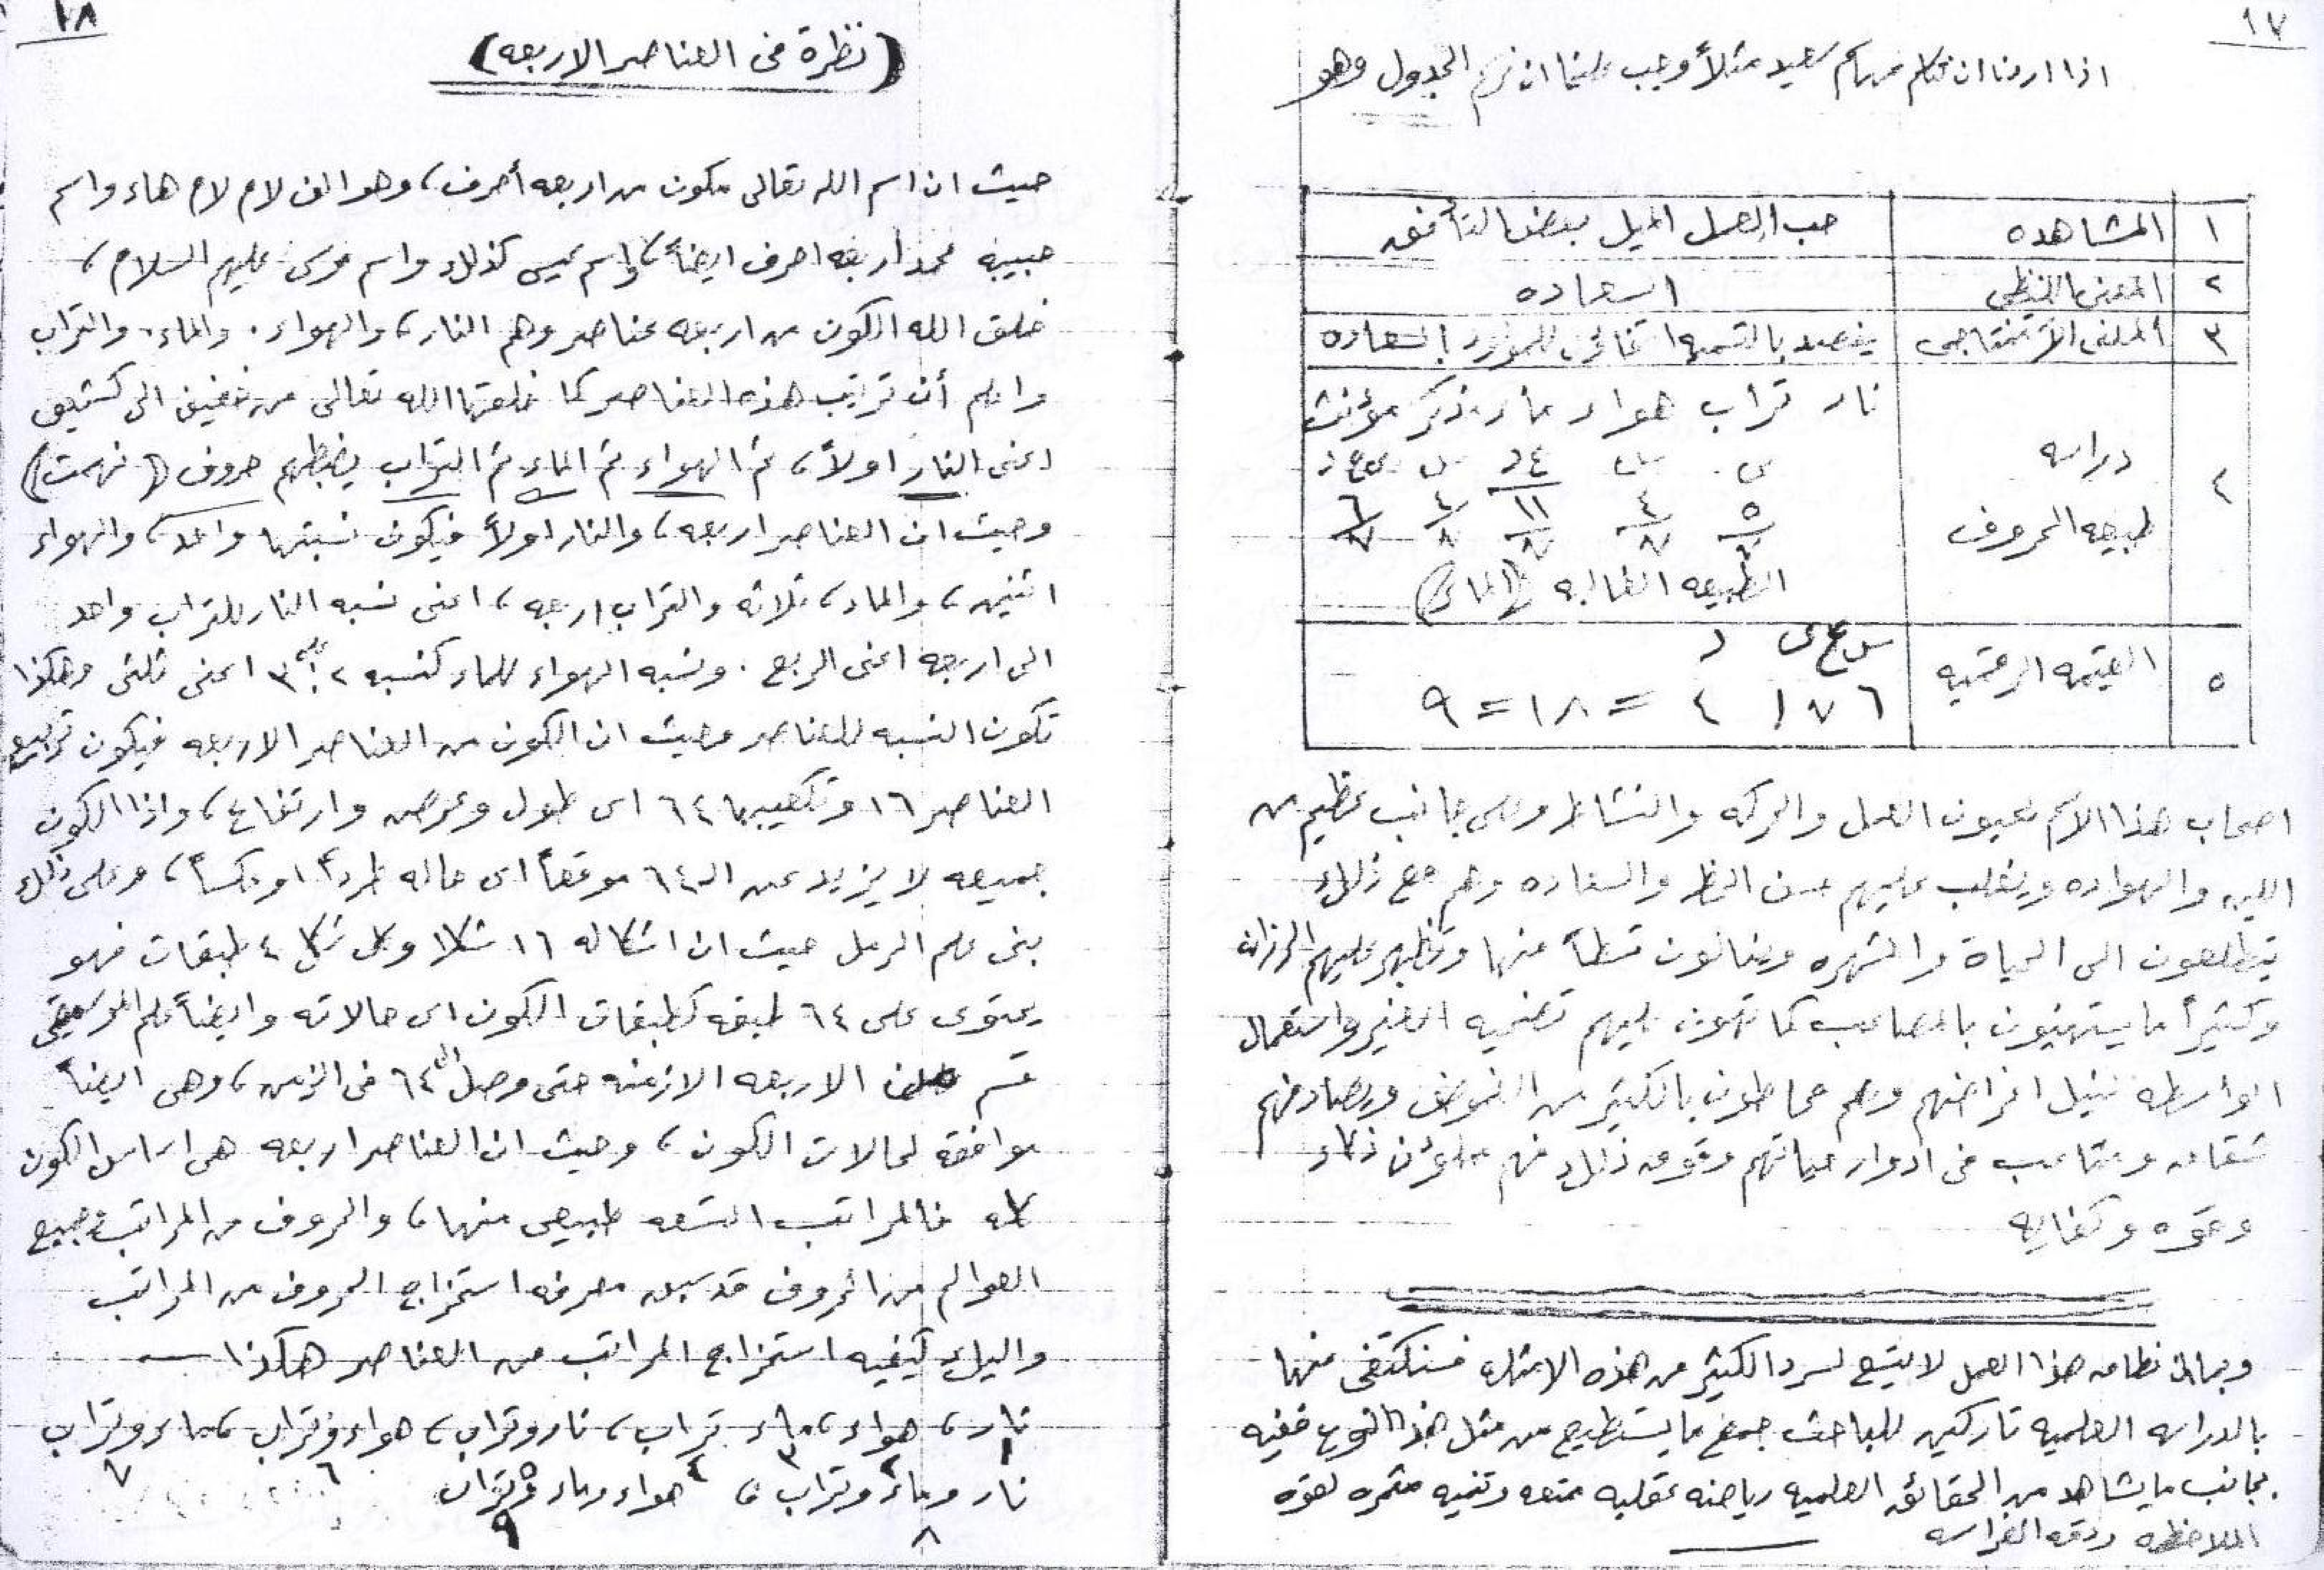 ١٧
اذا اردنا ان نتكلم عن اسم سعيد مثلاً وجب علينا ان نرسم الجدول وهو
١ المشاهده حب العمل الميل بعض التأنق
٢ المعنى اللفظى السعاده
٣ المعنى الأستنتاجى يقصد بالتسميه للمولود بالسعاده
٤ دراسه طبيعه الحروف
نار تراب هواء ماء مذكر مؤنث
الطبيعه الغالبه (المائى)
٥ القيمه الرقميه
س ع ى د
٦ ٧ ١ ٤ = ١٨ = ٩
اصحاب هذا الاسم يحبون العمل والحركه والنشاط وعلى جانب عظيم من
اللين والهواده ويغلب عليهم حسن الحظ والسعاده وهم مع ذلك
يتطلعون الى الحياة والشهره وينالون قسطاً منها وتظهر عليهم الرزانه
وكثيراً ما يستهينون بالمصاعب كما تهون عليهم تضحيه الغير واستعمال
الواسطه لنيل اغراضهم وهم محاطون بالكثير من الغموض ويصادفهم
شقاء ومتاعب فى ادوار حياتهم وفوق ذلك فهم ذكاء
وقوه وكفايه
وبما ان نطاق هذا العمل لا يتسع لسرد الكثير من هذه الامثله فسنكتفى منها
بالدراسه العلميه تاركين للباحث جمع ما يستطيع من مثل هذا النوع ففيه
بجانب ما يشاهد من الحقائق العلميه رياضه عقليه ممتعه وتنميه مثمره لقوه
الملاحظه ودقه الفراسه
١٨
(نظرة فى العناصر الاربعه)
حيث ان اسم الله تعالى مكون من اربعه أحرف، وهو الف لام لام هاء واسم
حبيبه محمد أربعه احرف ايضاً، واسم عيسى كذلك واسم موسى عليهم السلام،
خلق الله الكون من اربعه عناصر وهم النار، والهواء. والماء. والتراب
واعلم أن ترتيب هذه العناصر كما خلقها الله تعالى من خفيف الى كثيف
اعنى النار اولاً، ثم الهواء ثم الماء ثم التراب يضبطهم حروف (نهمت)
وحيث ان العناصر اربعه، والنار اولاً فيكون نسبتها واحد، والهواء
اثنين، والماء، ثلاثه والتراب اربعه، اعنى نسبه النار للتراب واحد
الى اربعه اعنى الربع. ونسبه الهواء للماء كنسبه ٢ الى ٣ اعنى ثلثى وهكذا
تكون النسبه للعناصر وحيث ان الكون من العناصر الاربعه فيكون تربيع
العناصر ١٦ وتكعيبها ٦٤ اى طول وعرض وارتفاع، واذا الكون
جميعه لا يزيد عن الـ ٦٤ موقعاً اى حاله طرداً او عكساً، وعلى ذلك
بنى علم الرمل حيث ان اشكاله ١٦ شكلا وكل شكل ٤ طبقات فهو
يحتوى على ٦٤ طبقه كطبقات الكون اى حالاته وايضاً علم الموسيقى
قسم الاربعه الازمنه حتى وصل الى ٦٤ فى الزمن، وهى ايضاً
موافقه لحالات الكون، وحيث ان العناصر اربعه هى اساس الكون
كله فالمراتب التسعه طبيعى منها، والحروف من المراتب وجميع
العوالم من الحروف قد سبق معرفه استخراج الحروف من المراتب
واليك كيفيه استخراج المراتب من العناصر هكذا
نار، هواء، ماء تراب، نار وتراب، هواء وتراب، ماء وتراب
١ ٢ ٣ ٤ ٥ ٦ ٧
نار وماء وتراب، هواء وماء وتراب
٨ ٩